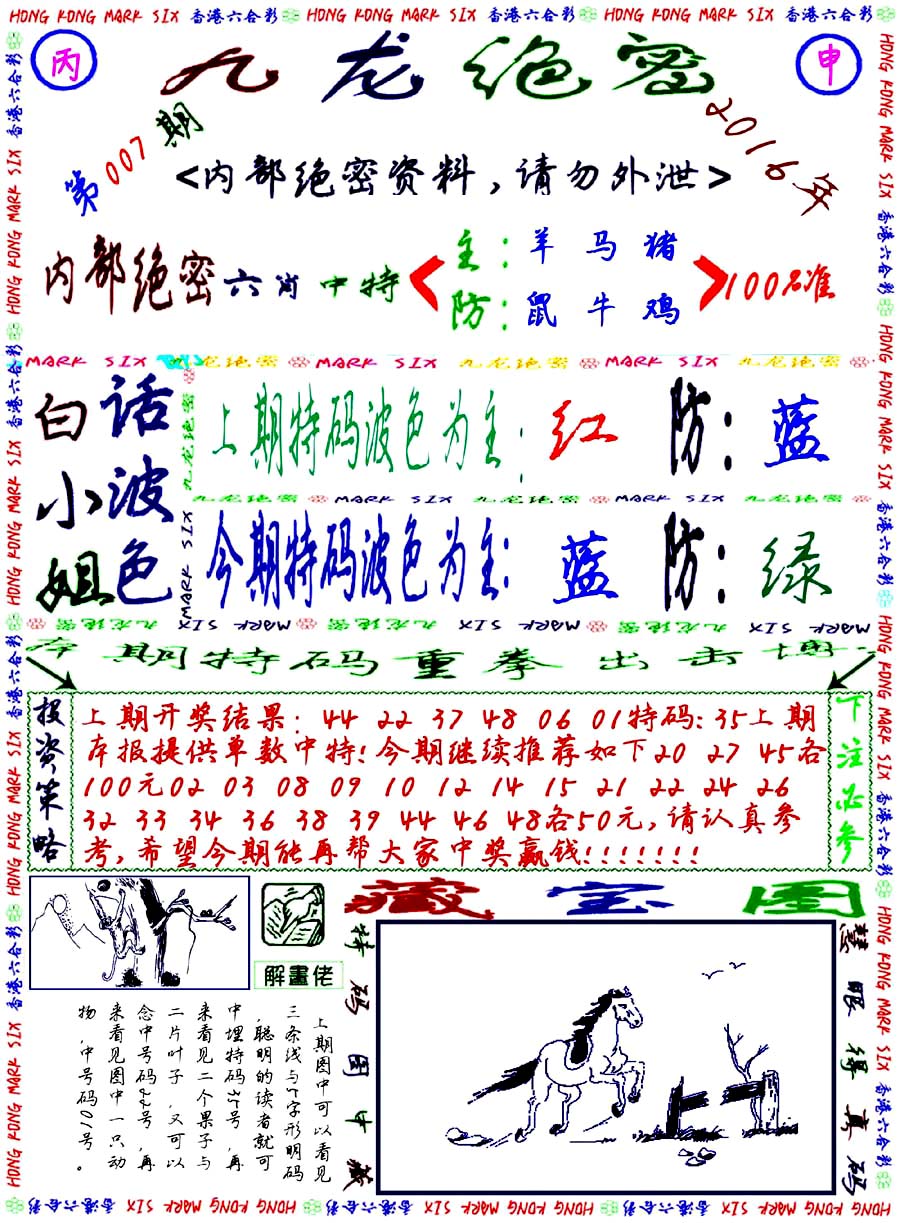 HONG KONG MARK SIX 香港六合彩 HONG KONG MARK SIX 香港六合彩 HONG KONG MARK SIX 香港六合彩
丙 九龙绝密 申
第007期 2016年
<内部绝密资料,请勿外泄>
内部绝密六肖中特
主:羊马猪
防:鼠牛鸡
100%准
MARK SIX 九龙绝密 MARK SIX 九龙绝密 MARK SIX 九龙绝密
白小姐
话波色
上期特码波色为主:红 防:蓝
九龙绝密 MARK SIX 九龙绝密 MARK SIX 九龙绝密
今期特码波色为主:蓝 防:绿
九龙绝密 MARK SIX 九龙绝密 MARK SIX 九龙绝密 MARK SIX
本期特码重拳出击博
投资策略
上期开奖结果:44 22 37 48 06 01特码:35上期
本报提供单数中特!今期继续推荐如下20 27 45各
100元02 03 08 09 10 12 14 15 21 22 24 26
32 33 34 36 38 39 44 46 48各50元,请认真参
考,希望今期能再帮大家中奖赢钱!!!!!!!
下注必参
藏宝图
解畫佬
上期图中可以看见
三条线与7字形明码
,聪明的读者就可
中埋特码37号,再
来看见二个果子与
二片叶子,又可以
念中号码22号,再
来看见图中一只动
物,中号码01号。
特码图中藏
慧眼得真码
HONG KONG MARK SIX 香港六合彩 HONG KONG MARK SIX 香港六合彩 HONG KONG MARK SIX 香港六合彩